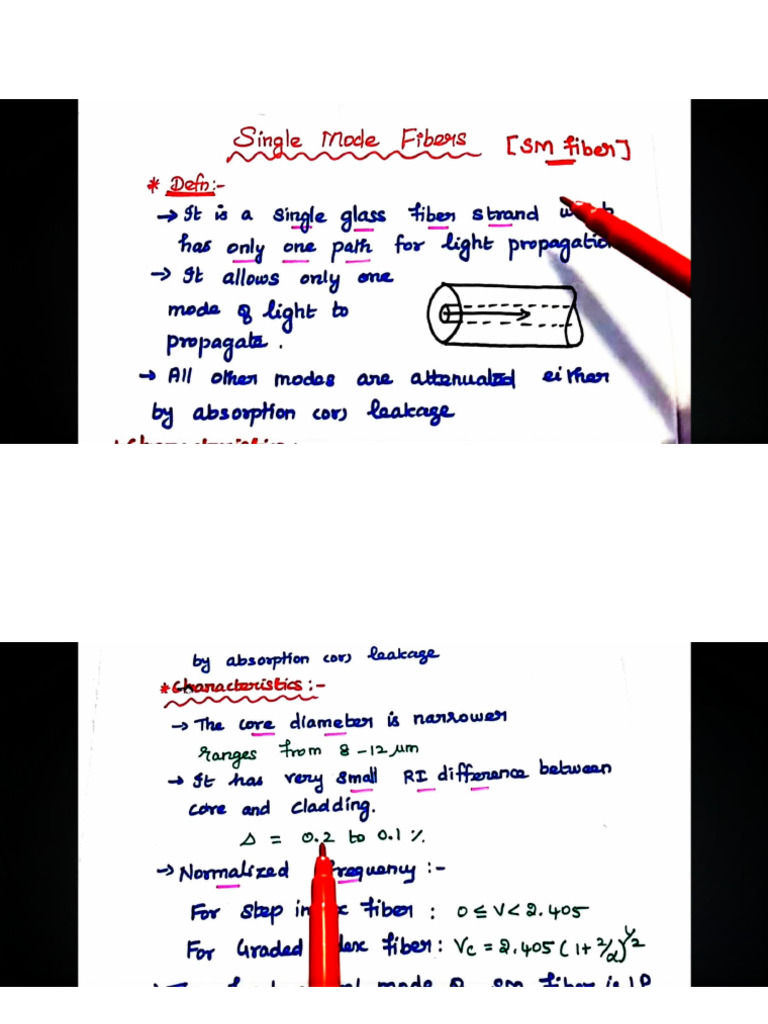 Single Mode Fibers [SM fiber]
* Defn:-
→ It is a single glass fiber strand
has only one path for light propagation
→ It allows only one
mode of light to
propagate.
→ All other modes are attenuated either
by absorption (or) leakage
* Characteristics:-
by absorption (or) leakage
* Characteristics:-
→ The core diameter is narrower
ranges from 8-12 μm
→ It has very small RI difference between
core and cladding.
Δ = 0.2 to 0.1 %.
→ Normalized frequency:-
For Step index fiber: 0 ≤ V < 2.405
For Graded index fiber: Vc = 2.405 (1+2/α)^1/2
mode of SM fiber is LP